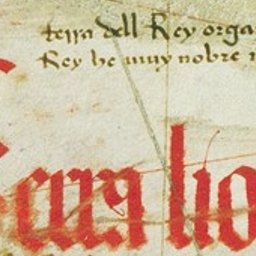 terra dell Rey orga
Rey he muy nobre
Serra lio